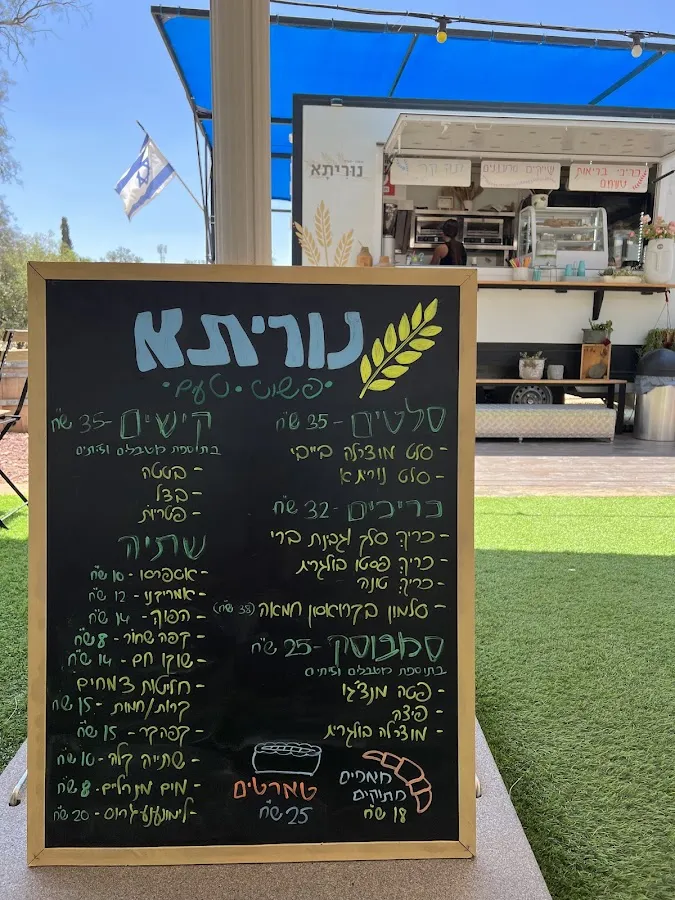 נוריתא
שייקים מרעננים
כריכי בריאות
טעמים
נוריתא
•פשוט•טעים•
סלטים - 35 ש"ח
- סלט מוצרלה בייבי
- סלט נוריתא
כריכים - 32 ש"ח
- כריך סלק וגבינת ברי
- כריך פסטו בולגרית
- כריך טונה
- סלמון בקרואסון חמאה (38 ש"ח)
סמבוסק - 25 ש"ח
בתוספת מטבלים וזיתים
- פטה מנצ'גו
- פיצה
- מוצרלה בולגרית
מאפים
מתוקים
18 ש"ח
קישים - 35 ש"ח
בתוספת מטבלים וזיתים
- בטטה
- בצל
- פטריות
שתיה
- אספרסו - 10 ש"ח
- אמריקנו - 12 ש"ח
- הפוך - 14 ש"ח
- קפה שחור - 8 ש"ח
- שוקו חם - 14 ש"ח
- חליטות צמחים
קרות/חמות - 15 ש"ח
- קפה קר - 15 ש"ח
- שתיה קלה - 10 ש"ח
- מים מנרלים - 8 ש"ח
- לימונענע גרוס - 20 ש"ח
טארטים
25 ש"ח